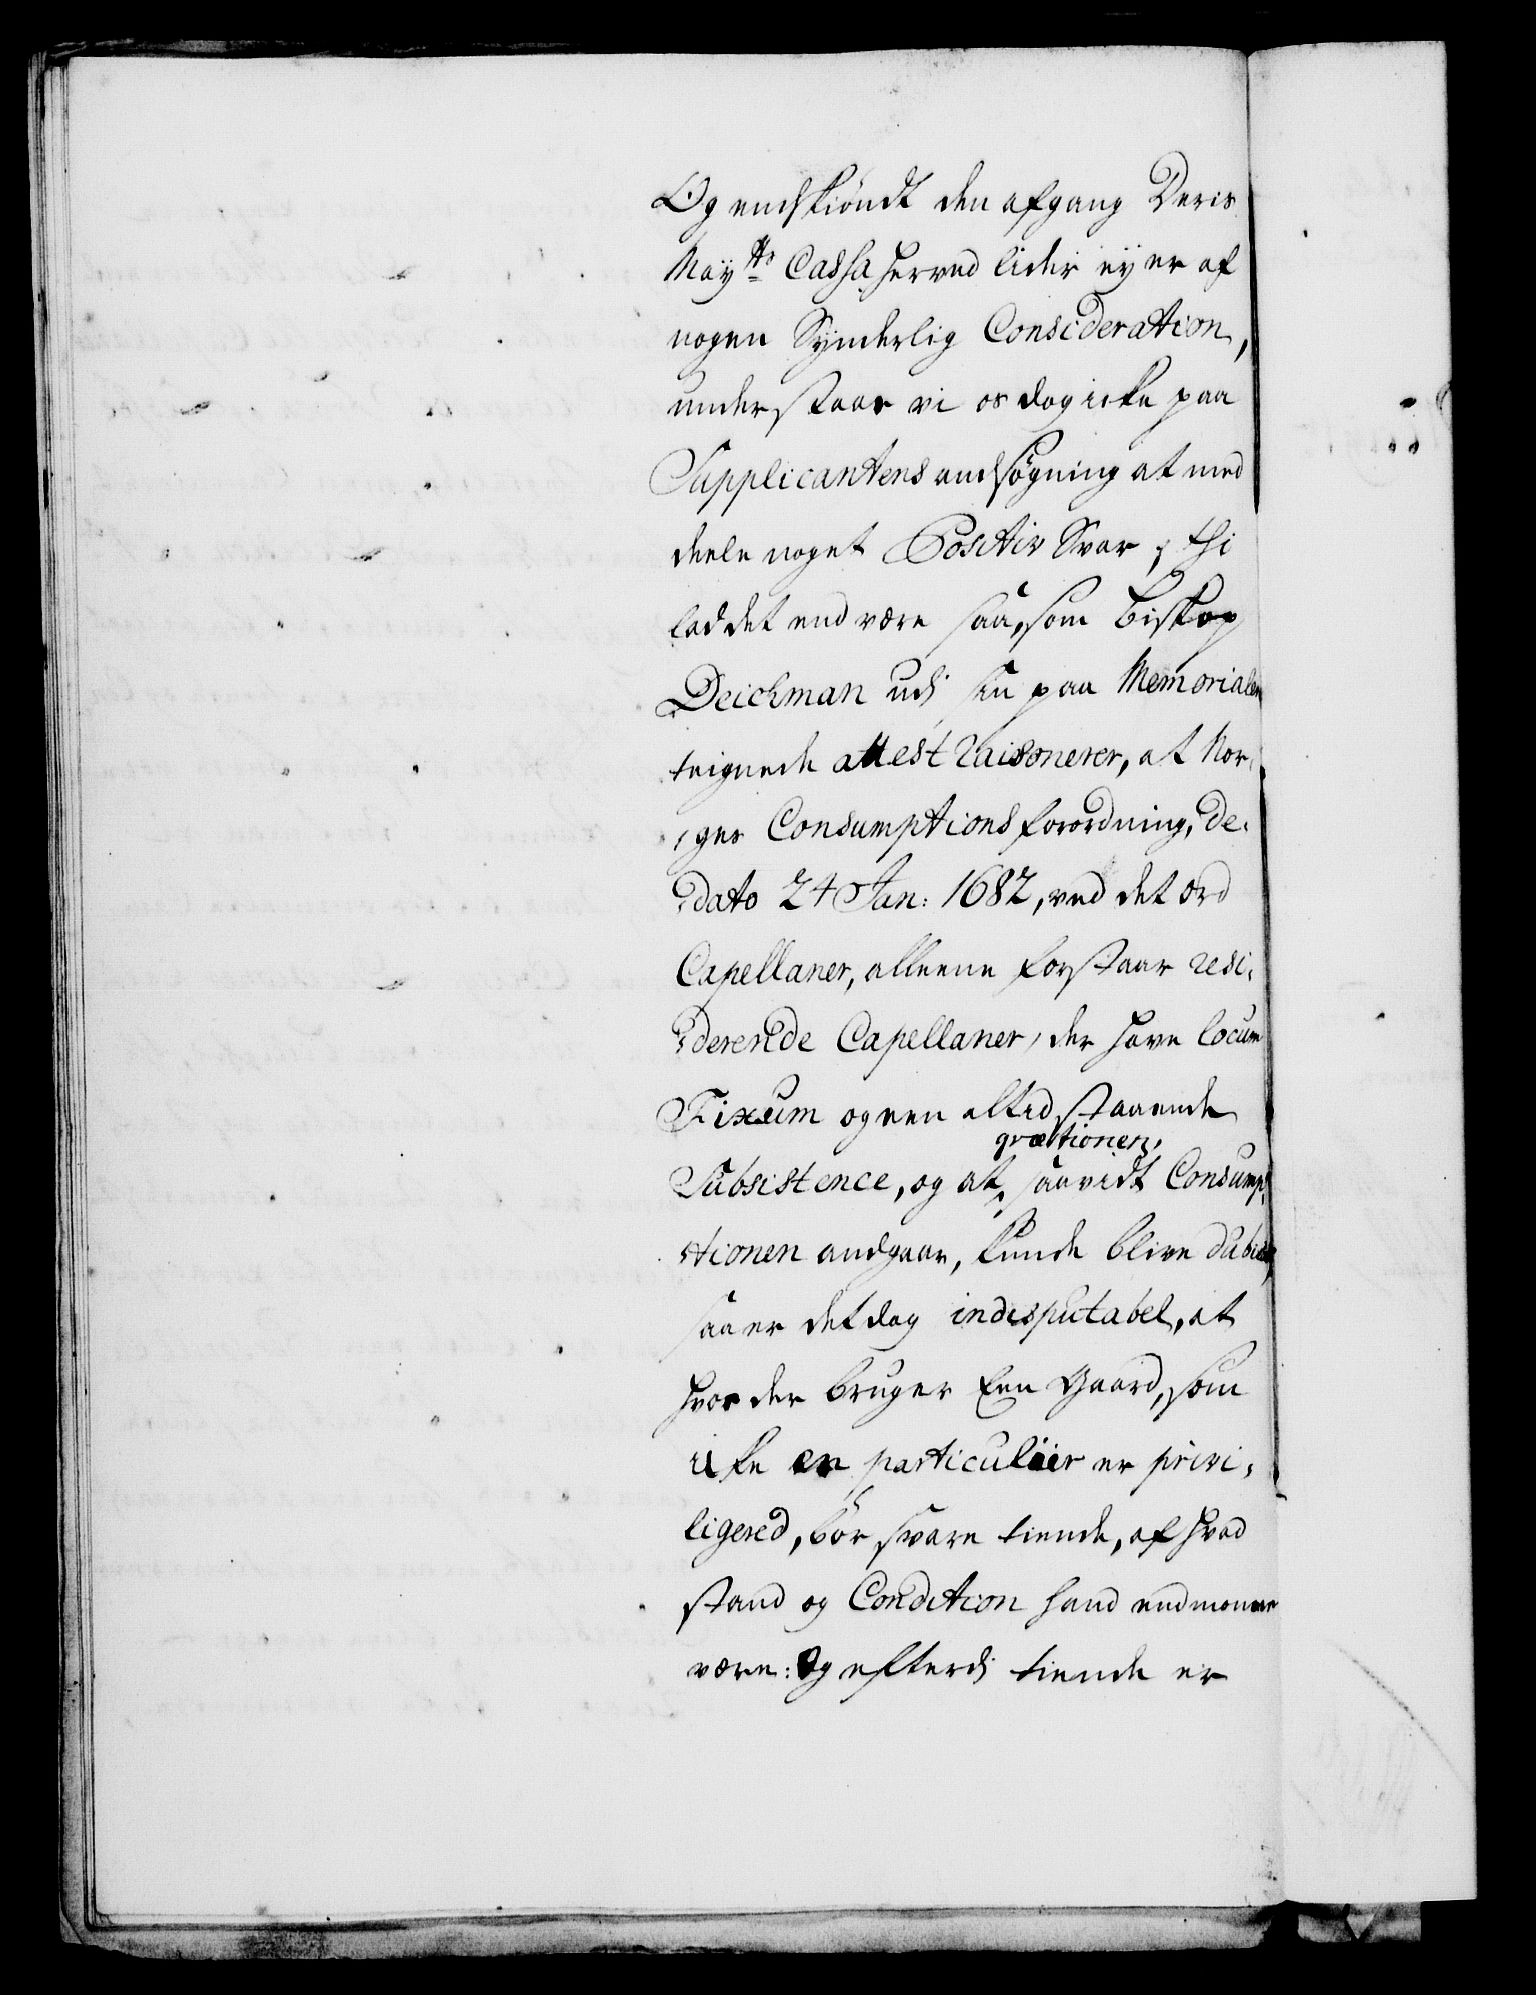 Og endskiøndt den afgang Deris
May<sup>tts</sup> Cassa herved lider ey er af
nogen Synderlig Consideration,
understaar vi os dog icke paa
Supplicantens andsøgning at med
deele noget Positiv Svar, thi
lad det end være saa, som Biskop
Deichman udj sin paa Memorialen
teignede attest raisonerer, at Nor-
ges Consumptions forordning, de-
dato 24 Jan: 1682, ved det ord
Capellaner, alleene forstaar resi-
derende Capellaner, der have locum
Fixum og een altid staaende
qvæstionen,
Subsistence, og at saavidt Consump-
tionen andgaar, kunde blive dubieus,
saa er det dog indisputabel, at
hvor der bruger Een Gaard, som
icke en particulier er privi-
ligered, bør svare tiende, af hvad
stand og Condition hand end monne
være: Og efterdj tiende er